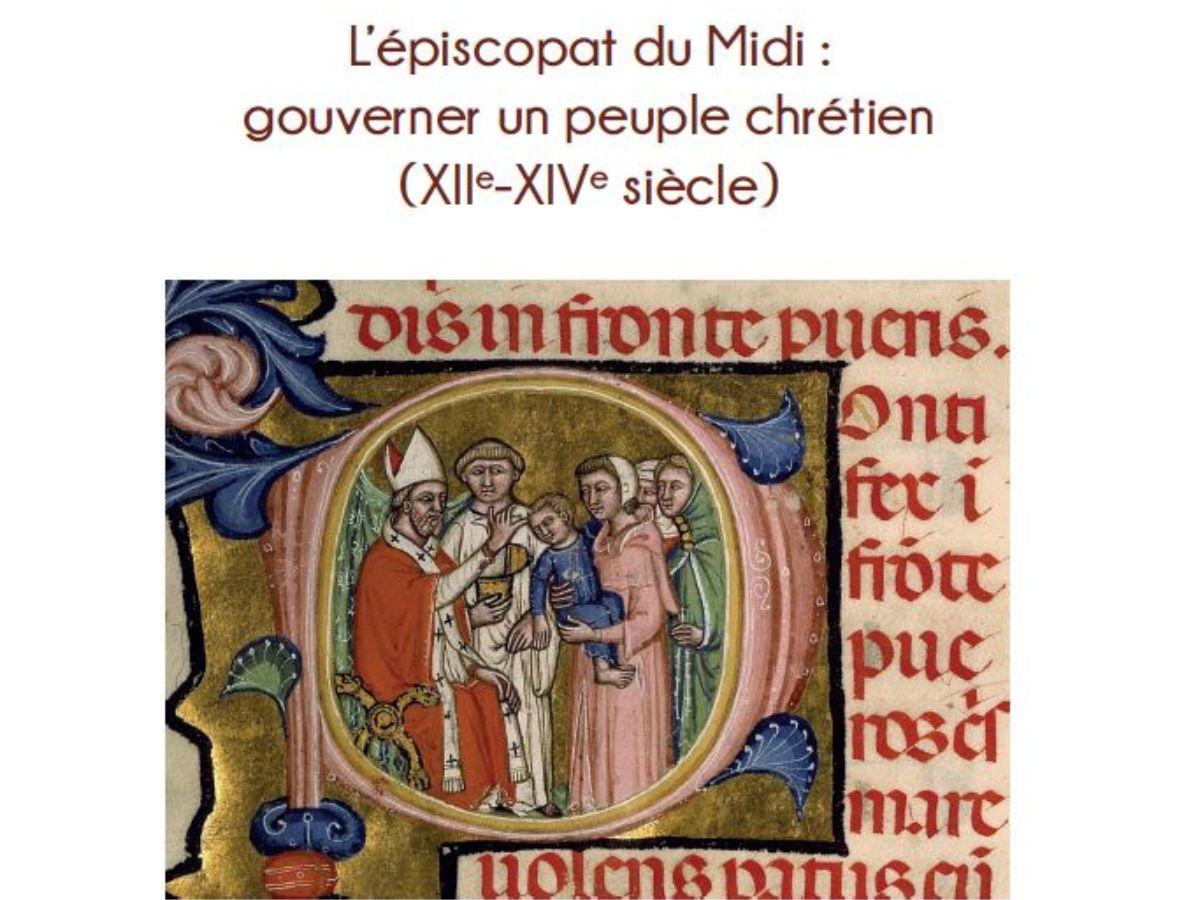 L'épiscopat du Midi :
gouverner un peuple chrétien
(XIIe-XIVe siècle)
dis in fronte pueris.
Onti
fex i
frōte
pue
ros
mare
uolens